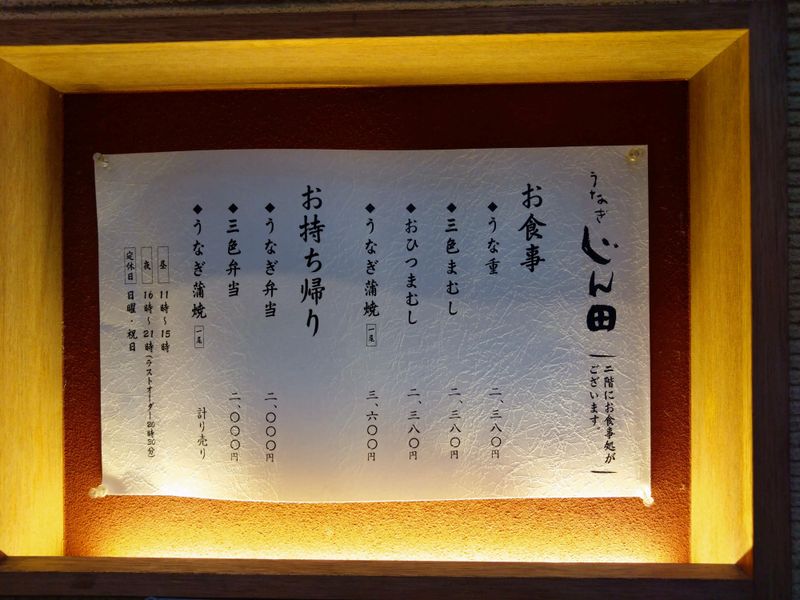 うなぎ じん田
二階にお食事処が
ございます。
お食事
◆うな重 二、三八〇円
◆三色まむし 二、三八〇円
◆おひつまむし 二、三八〇円
◆うなぎ蒲焼 一尾 三、六〇〇円
お持ち帰り
◆うなぎ弁当 二、〇〇〇円
◆三色弁当 二、〇〇〇円
◆うなぎ蒲焼 一尾 計り売り
昼 11時～15時
夜 16時～21時(ラストオーダー20時30分)
定休日 日曜・祝日